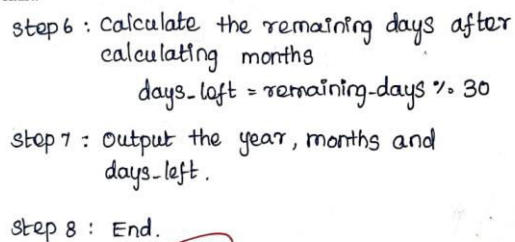 step 6 : Calculate the remaining days after
calculating months
days_left = remaining-days % 30
step 7 : Output the year, months and
days-left.
step 8 : End.